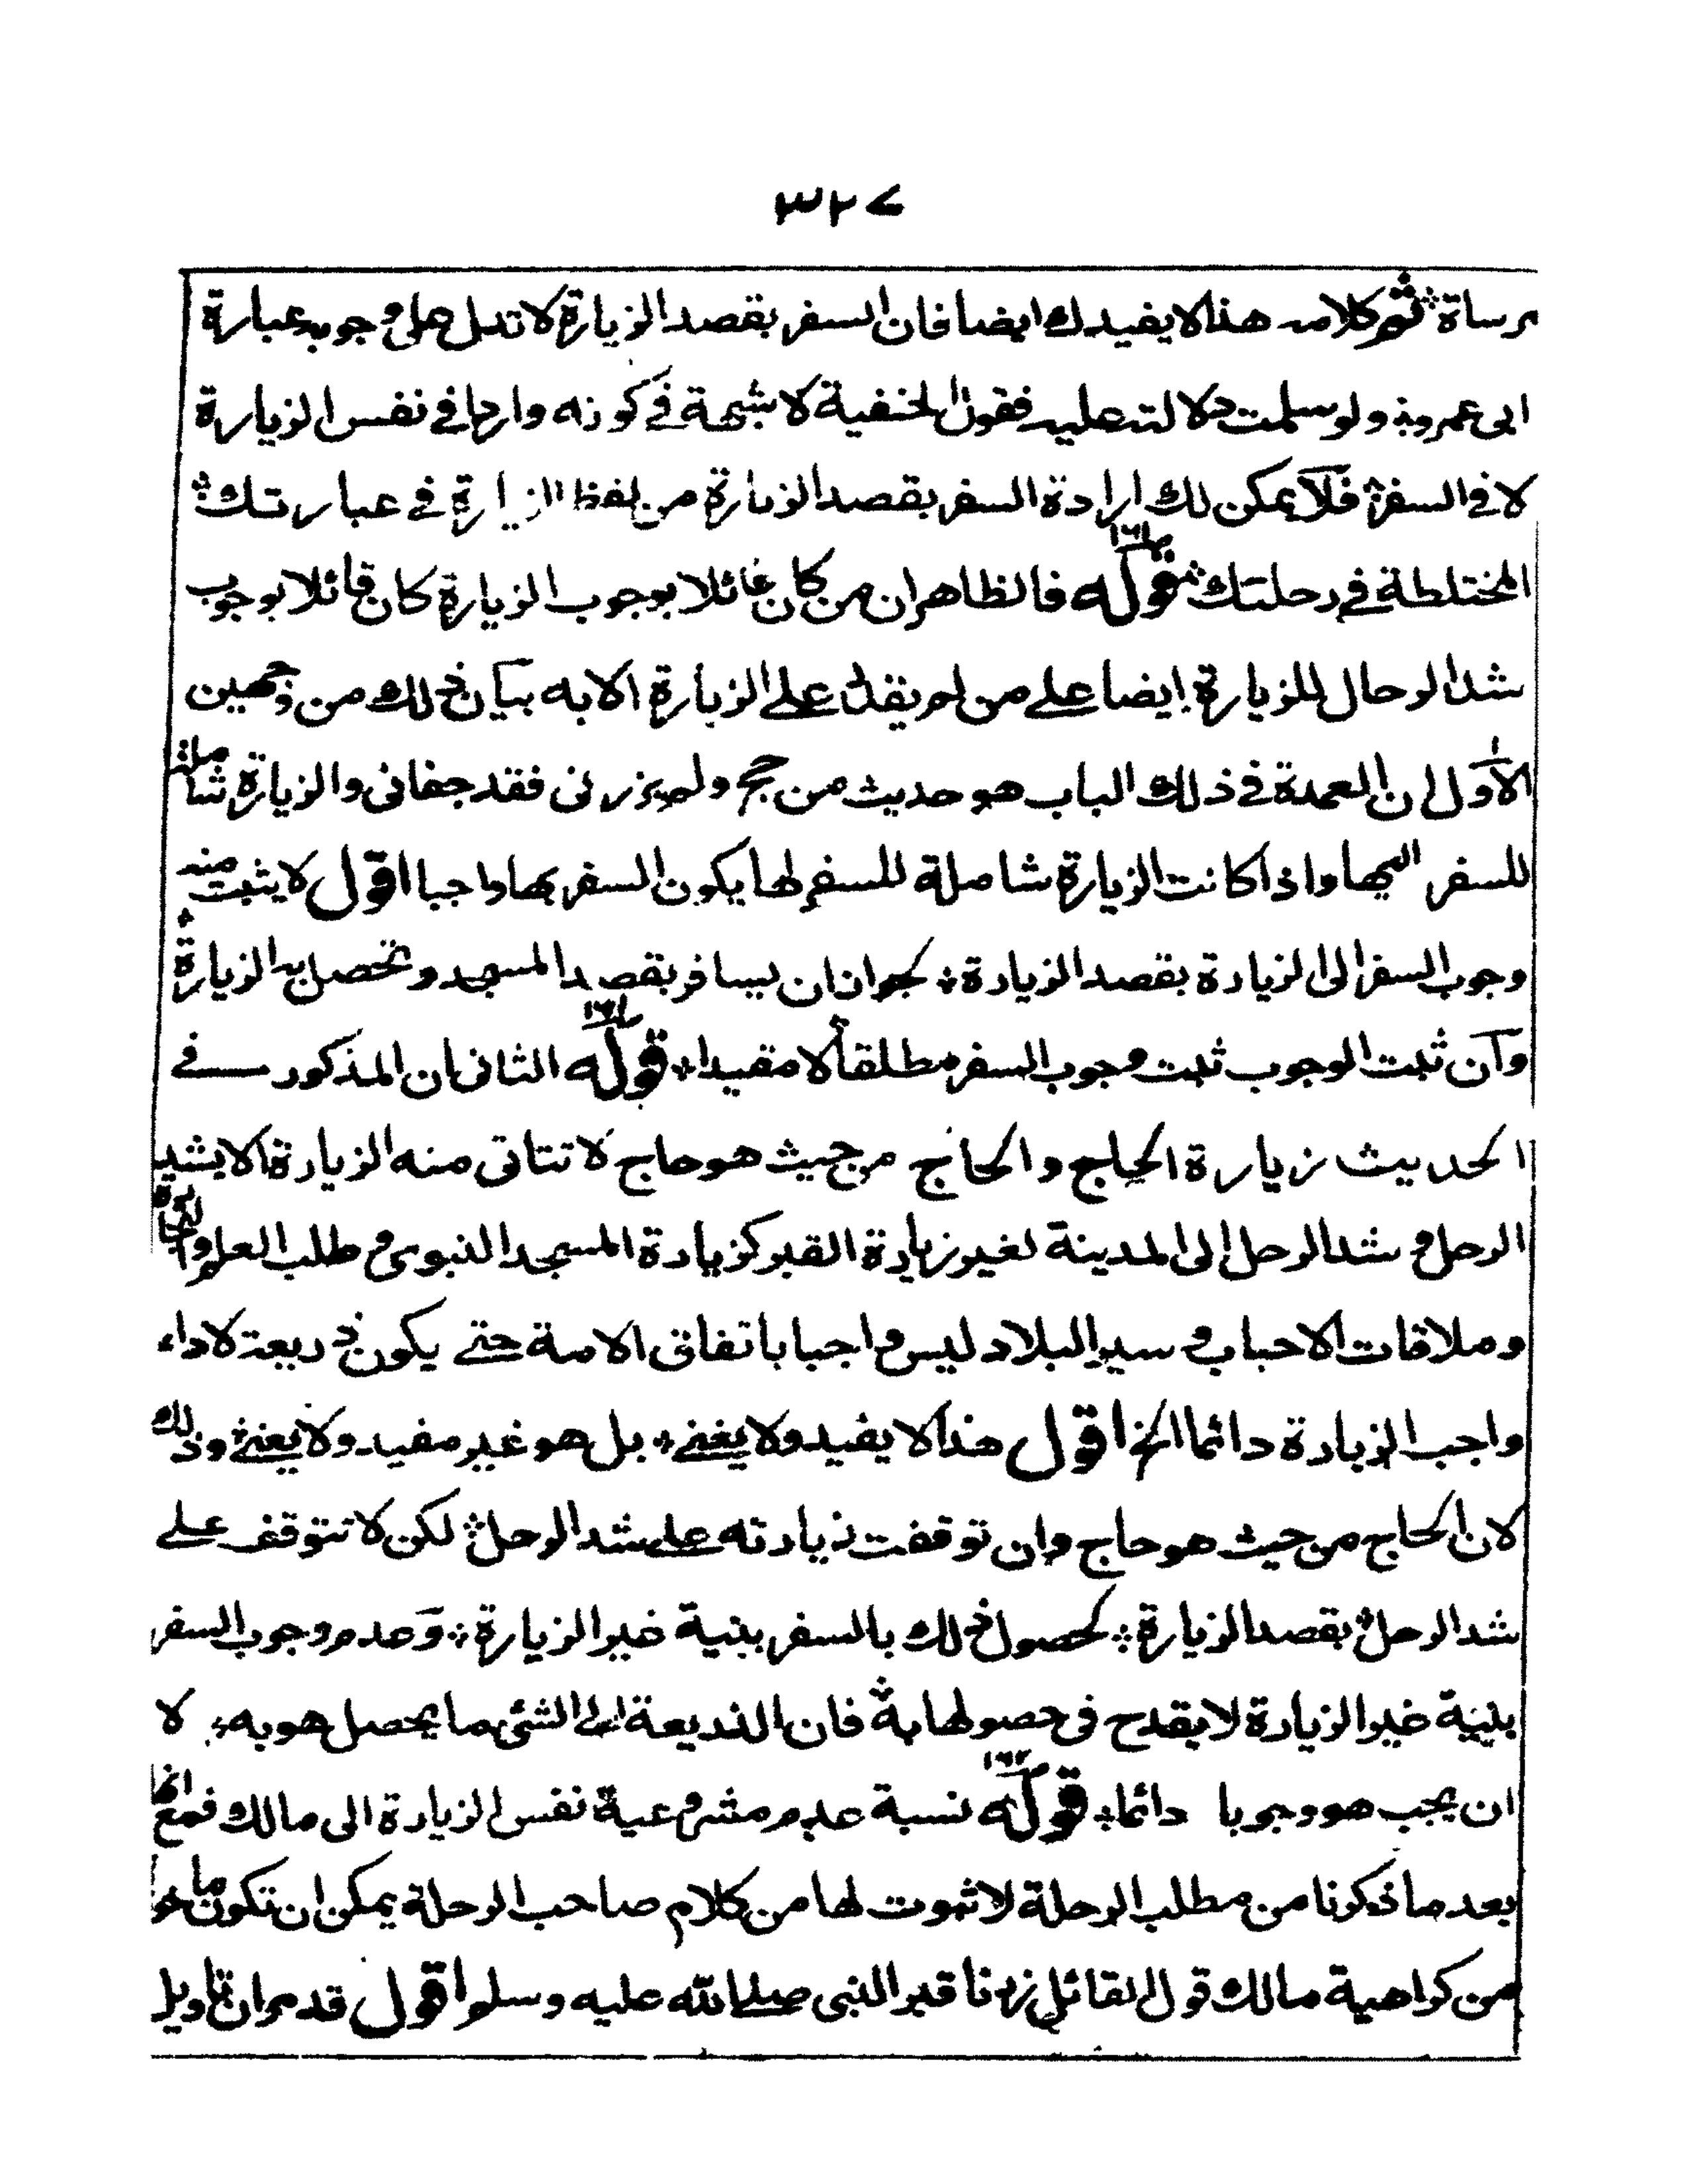 ٣٢٧
رساة ثم كلامه هذا لا يفيدك ايضا فان السفر بقصد الزيارة لا تدل على وجوبه عبارة
ابى عمرو ولو سلمت دلالته عليه فقول الحنفية لا شبهة في كونه واردا في نفس الزيارة
لا في السفر فلا يمكن لك ارادة السفر بقصد الزيارة من لفظ الزيارة في عبارتك
المختلطة في رحلتك قوله فالظاهر ان من كان قائلا بوجوب الزيارة كان قائلا بوجوب
شد الرحال للزيارة ايضا على من لم يقدر على الزيارة الا به بيان ذلك من وجهين
الاول ان العمدة في ذلك الباب هو حديث من حج ولم يزرنى فقد جفانى والزيارة شاملة
للسفر اليها واذا كانت الزيارة شاملة للسفر لها يكون السفر بها واجبا اقول لا يثبت منه
وجوب السفر الى الزيارة بقصد الزيارة لجواز ان يسافر بقصد المسجد وتحصل به الزيارة
وان ثبت الوجوب ثبت وجوب السفر مطلقا لا مقيدا قوله الثانى ان المذكور في
الحديث زيارة الحاج والحاج من حيث هو حاج لا تتاتى منه الزيارة الا بشد
الرحل وشد الرحل إلى المدينة لغير زيارة القبر كزيارة المسجد النبوى و طلب العلم والتجارة
وملاقات الاحباب و سير البلاد ليس واجبا باتفاق الامة حتى يكون ذريعة لاداء
واجب الزيارة دائما الخ اقول هذا لا يفيد ولا يغنى بل هو غير مفيد ولا يعنى وذلك
لان الحاج من حيث هو حاج وان توقفت زيارته على شد الرحل لكن لا تتوقف على
شد الرحل بقصد الزيارة لحصول ذلك بالسفر بنية غير الزيارة وعدم وجوب السفر
بنية غير الزيارة لا يقدح فى حصولها به فان الذريعة الى الشئ ما يحصل هو به لا
ان يجب هو وجوبا دائما قوله نسبة عدم مشروعية نفس الزيارة الى مالك فمع انها
بعد ما ذكرنا من مطلب الرحلة لا ثبوت لها من كلام صاحب الرحلة يمكن ان تكون
من كراهية مالك قول القائل زرنا قبر النبى صلى الله عليه وسلم اقول قد مر ان تاويل